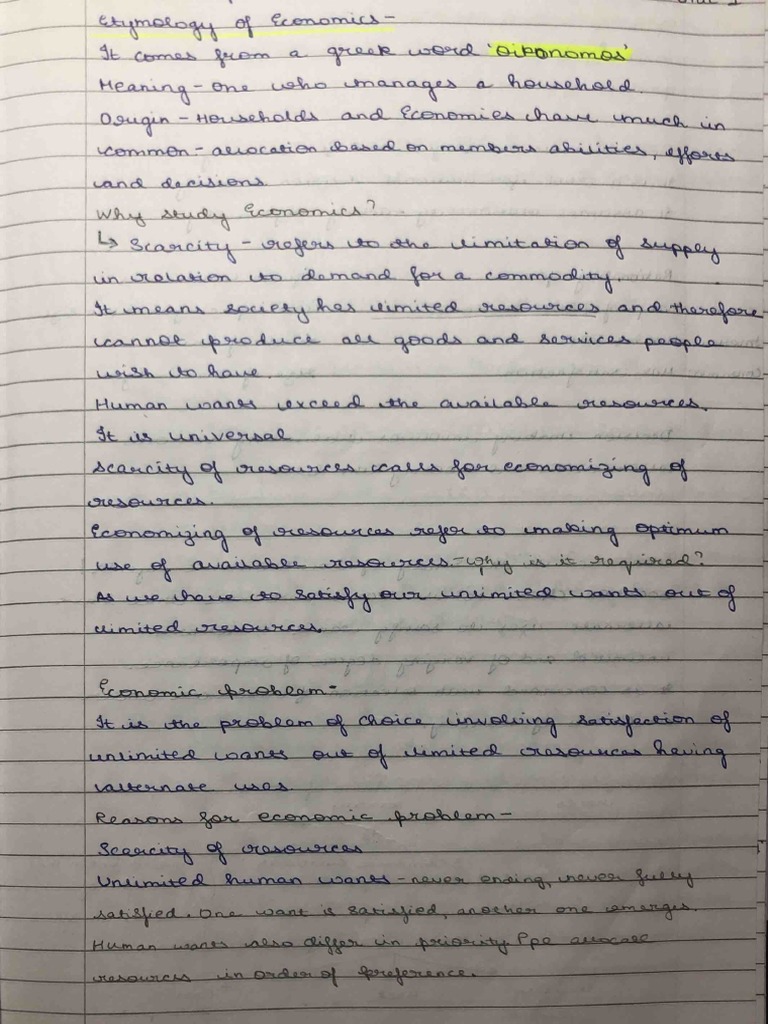 Etymology of Economics-
It comes from a greek word 'oikonomos'
Meaning - one who manages a household.
Origin - Households and Economies have much in
common - allocation based on members abilities, efforts
and decisions.
Why study Economics?
↳ Scarcity - refers to the limitation of supply
in relation to demand for a commodity.
It means society has limited resources and therefore
cannot produce all goods and services people
wish to have.
Human wants exceed the available resources.
It is universal
Scarcity of resources calls for economizing of
resources.
Economizing of resources refer to making optimum
use of available resources. - Why is it required?
As we have to satisfy our unlimited wants out of
limited resources.
Economic problem-
It is the problem of choice, involving satisfaction of
unlimited wants out of limited resources having
alternate uses.
Reasons for economic problem -
Scarcity of resources
Unlimited human wants - never ending, never fully
satisfied. One want is satisfied, another one emerges.
Human wants also differ in priority. Ppl allocate
resources in order of preference.